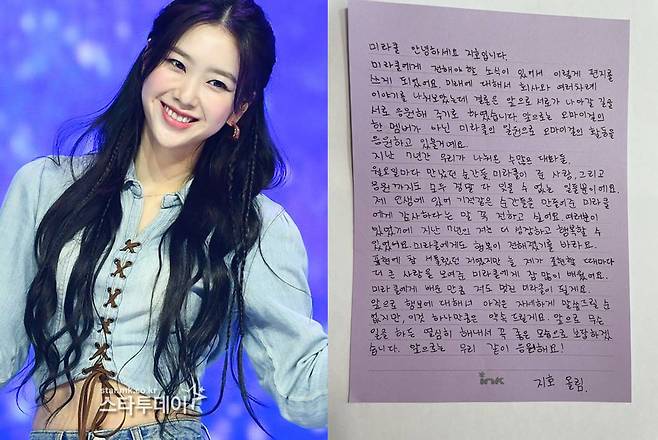 star.mk.co.kr
스타투데이
미라클 안녕하세요 지호입니다.
미라클에게 전해야 할 소식이 있어서 이렇게 편지를
쓰게 되었어요. 미래에 대해서 회사와 여러차례
이야기를 나눠보았는데 결론은 앞으로 서로가 나아갈 길을
서로 응원해 주기로 하였습니다. 앞으로는 오마이걸의
한 멤버가 아닌 미라클의 일원으로 오마이걸의 활동을
응원하고 있을거예요.
지난 7년간 우리가 나눠온 수많은 대화들,
월요일마다 만났던 순간들, 미라클이 준 사랑, 그리고
응원까지도 모두 정말 다 잊을 수 없는 일들뿐이에요.
제 인생에 있어 기적같은 순간들을 만들어준 미라클
에게 감사하다는 말 꼭 전하고 싶어요. 여러분이
있었기에 지난 7년의 저는 더 성장하고 행복할 수
있었어요. 미라클에게도 행복이 전해졌기를 바라요.
표현에 참 서툴렀던 저였지만 늘 제가 표현할 때마다
더 큰 사랑을 보여준 미라클에게 참 많이 배웠어요.
미라클에게 배운 만큼 저도 멋진 미라클이 될게요.
앞으로 행보에 대해서 아직은 자세하게 말씀드릴 순
없지만, 이것 하나만큼은 약속드릴게요. 앞으로 무슨
일을 하든 열심히 해내서 꼭 좋은 모습으로 보답하겠
습니다. 앞으로는 우리 같이 응원해요!
ink
지호 올림.